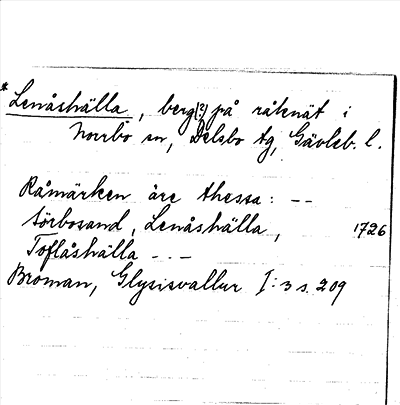 * Lenåshälla, berg(?) på råknät i
Norrbo sn, Delsbo tg, Gävleb. l.
Råmärken äre thessa: --
törbosand, Lenåshälla, 1726
Toflåshälla - . -
Broman, Glysisvallur I:3 s. 209